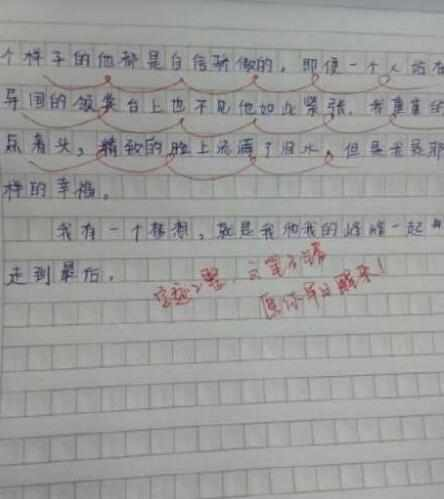 个样子的他都是自信骄傲的,即便一个人站在
异国的领奖台上也不见他如此紧张,我重重的
点着头,精致的脸上流满了泪水,但是无是那
样的幸福。
我有一个梦想,就是我和我的 一起
走到最后。
字迹工整,文笔不错
愿你早日醒来!